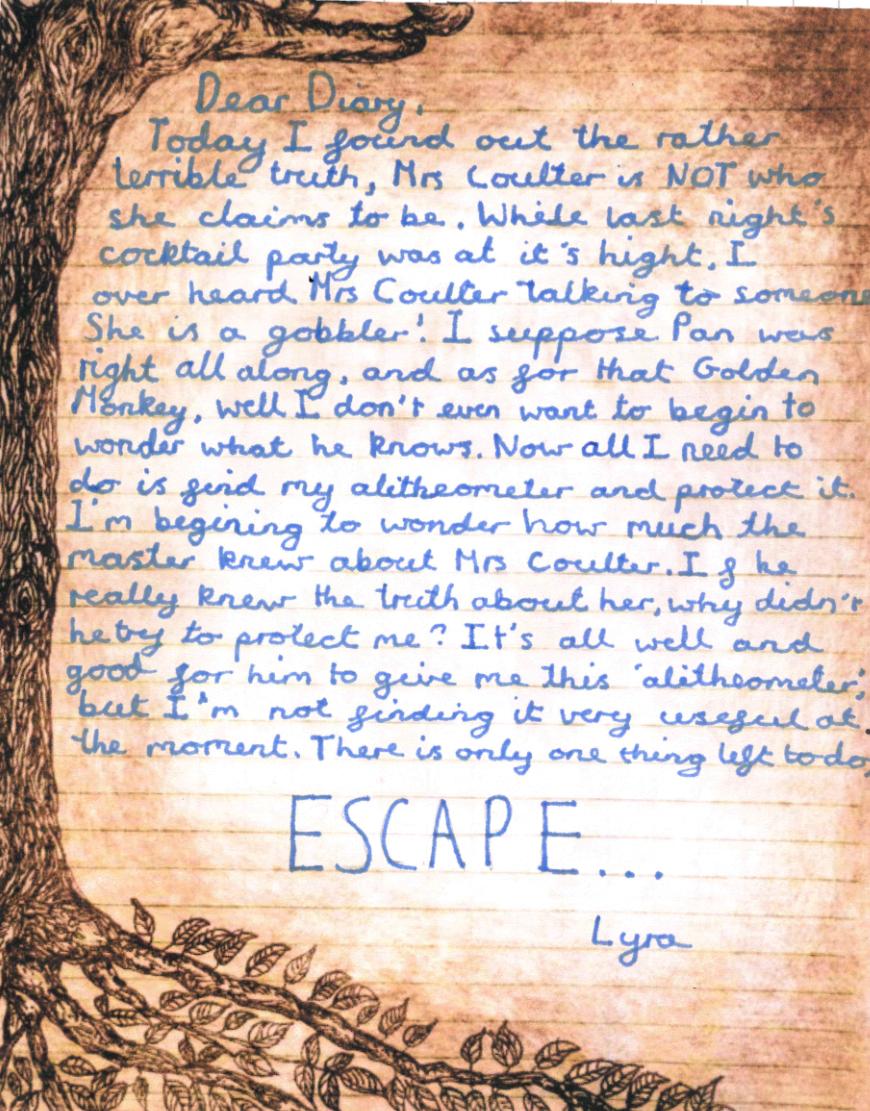 Dear Diary,
Today I found out the rather
terrible truth, Mrs Coulter is NOT who
she claims to be. While last night's
cocktail party was at it's hight, I
over heard Mrs Coulter talking to someone
She is a gobbler! I suppose Pan was
right all along, and as for that Golden
Monkey, well I don't even want to begin to
wonder what he knows. Now all I need to
do is find my alitheometer and protect it.
I'm begining to wonder how much the
master knew about Mrs Coulter. If he
really knew the truth about her, why didn't
he try to protect me? It's all well and
good for him to give me this 'alitheometer',
but I'm not finding it very useful at
the moment. There is only one thing left to do,
ESCAPE...
Lyra